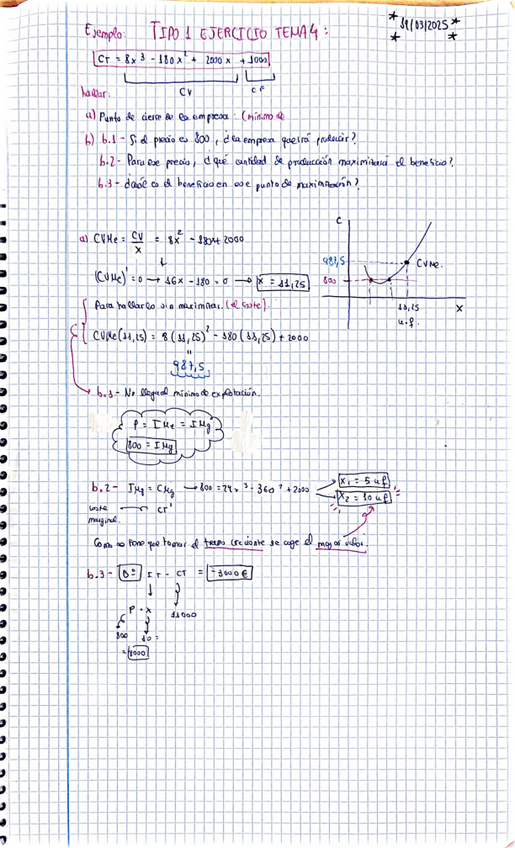 Ejemplo: TIPO 1 EJERCICIO TEMA 4:
* 11/03/2025 *
* *
CT = 8x³ - 180x² + 2000x + 1000
CV CF
hallar:
a) Punto de cierre de la empresa: (mínimo de
b) b.1 - Si el precio es 800, ¿la empresa querrá producir?
b.2- Para ese precio, ¿qué cantidad de producción maximitará el beneficio?
b.3 - ¿cuál es el beneficio en ese punto de maximización?
a) CVMe = CV/X = 8x² - 180x + 2000
(CVMe)' = 0 → 16x - 180 = 0 → x = 11,25
Para hallarlo sin maximizar. (el coste).
CVMe (11,25) = 8 (11,25)² - 180 (11,25) + 2000
=
987,5
C
987,5
800
CVMe.
11,25
u.f.
X
b.1 - No llega al mínimo de explotación.
P = IMe = IMg
800 = IMg
b.2 - IMg = CMg → 800 = 24x² - 360x + 2000
X1 = 5 uf
X2 = 10 uf
coste CT'
marginal.
Como se tiene que tomar el tramo creciente se coge el mayor valor.
b.3 - B = IT - CT = -3000€
P · x
11000
800 10 =
= 8000